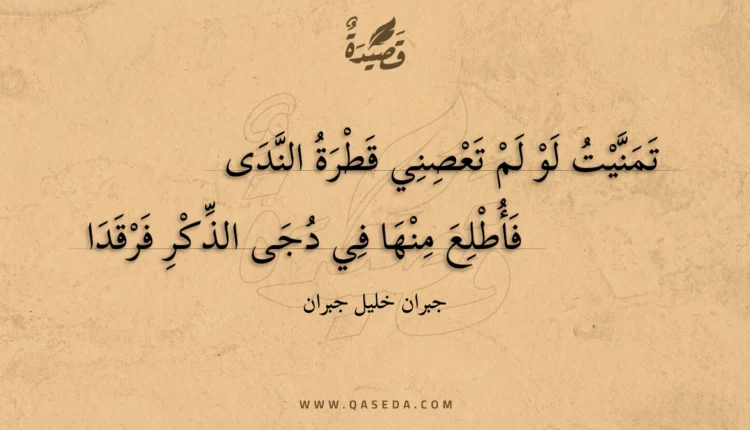 قَصِيدَةٌ
تَمَنَّيْتُ لَوْ لَمْ تَعْصِنِي قَطْرَةُ النَّدَى
فَأُطْلِعَ مِنْهَا فِي دُجَى الذِّكْرِ فَرْقَدَا
جبران خليل جبران
WWW.QASEDA.COM